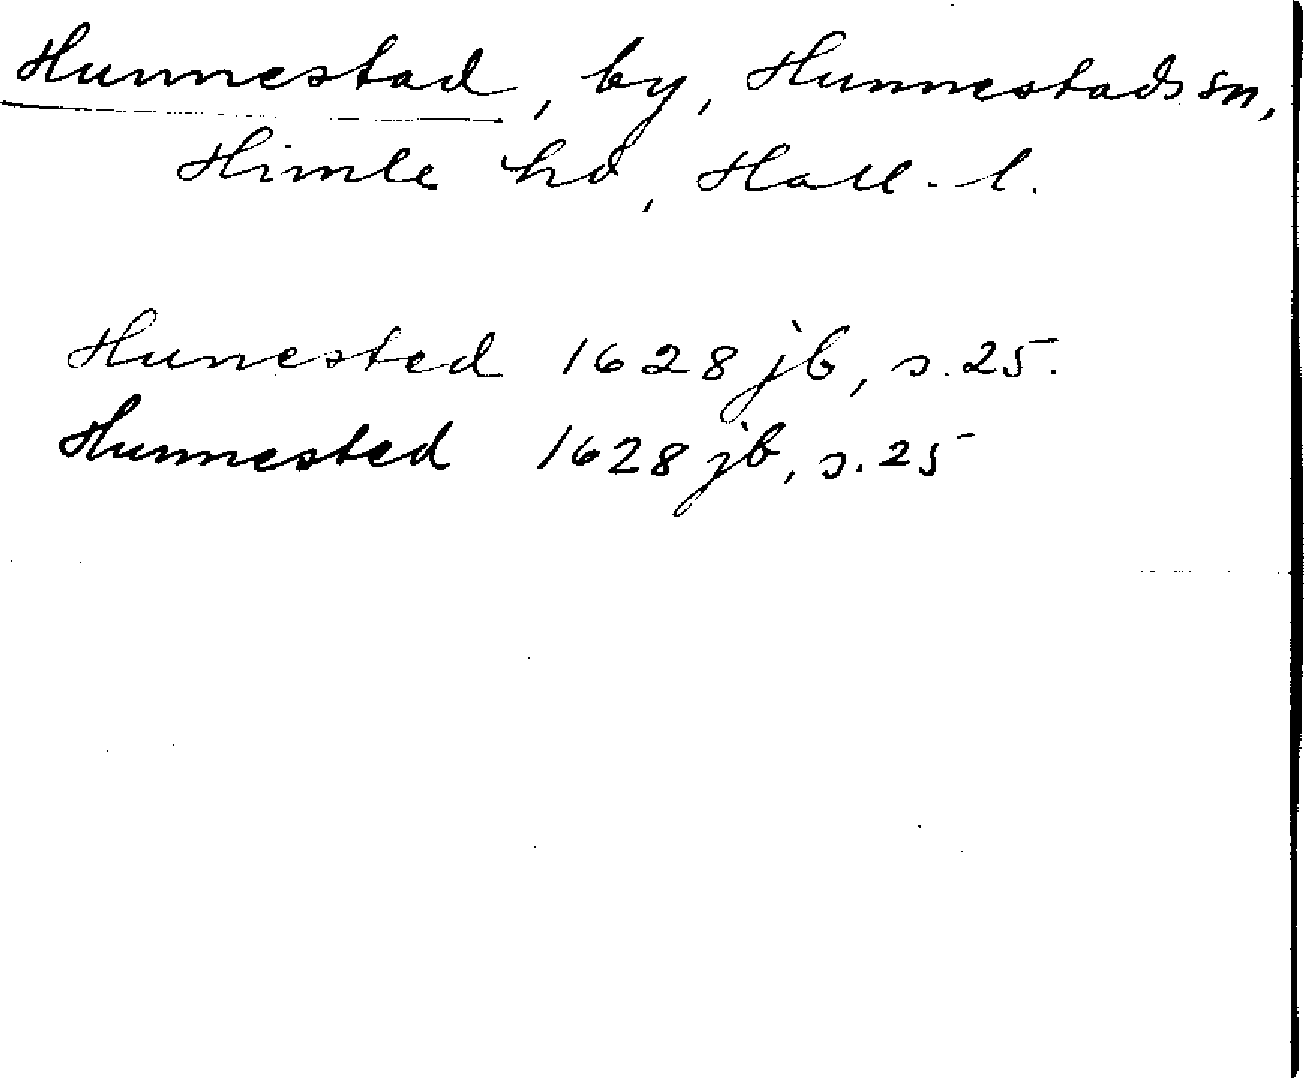 Hunnestad, by, Hunnestads sn,
Himle hd, Hall. l.
Hunested 1628 jb, s. 25.
Hunnested 1628 jb, s. 25